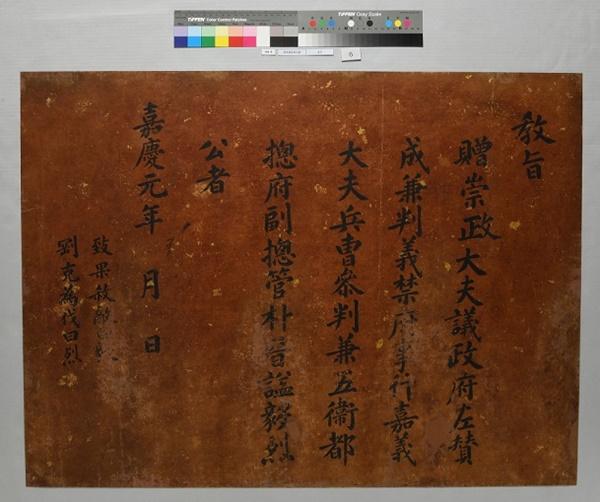 教旨
贈崇政大夫議政府左賛
成兼判義禁府事行嘉義
大夫兵曹叅判兼五衛都
摠府副摠管朴晉謚毅烈
公者
嘉慶元年 月 日
致果殺敵曰毅
劉克為伐曰烈
TIFFEN Color Control Patches
TIFFEN Gray Scale
6